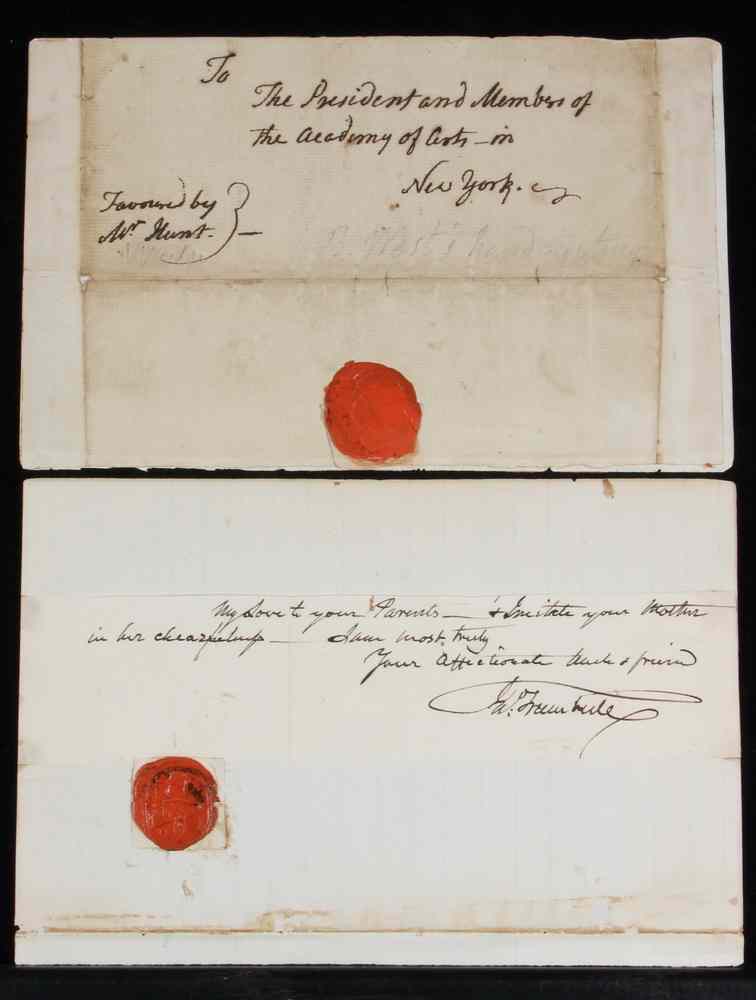 To
The President and Members of
the Academy of Arts – in
New York.
Favoured by
Mr Hunt. –
B. West's handwriting
My Love to your Parents — & Imitate your Mother
in her chearfulness — I am most truly
Your Affectionate Uncle & friend
Jno. Trumbull